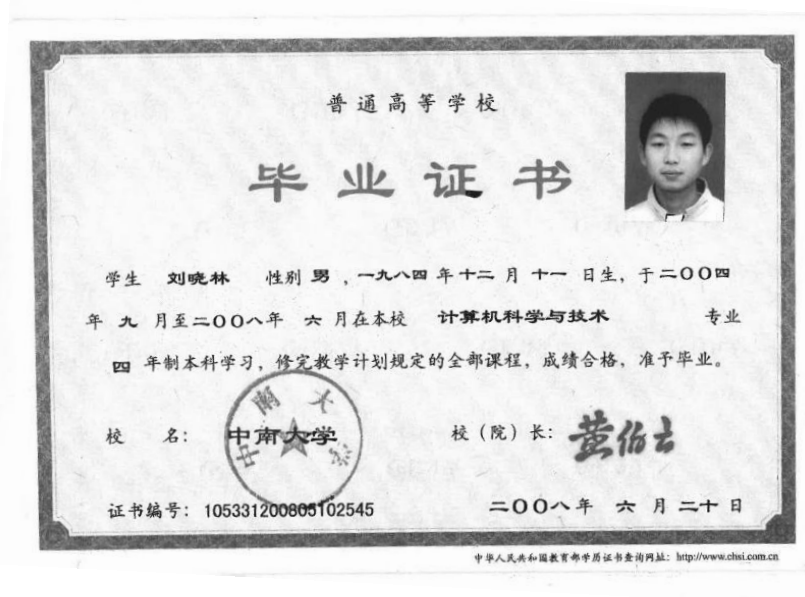 普通高等学校
毕业证书
学生 刘晓林 性别 男 ，一九八四 年 十二 月 十一 日生，于二〇〇四
年 九 月至二〇〇八年 六 月在本校 计算机科学与技术 专业
四 年制本科学习，修完教学计划规定的全部课程，成绩合格，准予毕业。
校 名： 中南大学 校（院）长：黄伯云
中南大学
证书编号：105331200805102545 二〇〇八年 六 月 二十 日
中华人民共和国教育部学历证书查询网址：http://www.chsi.com.cn